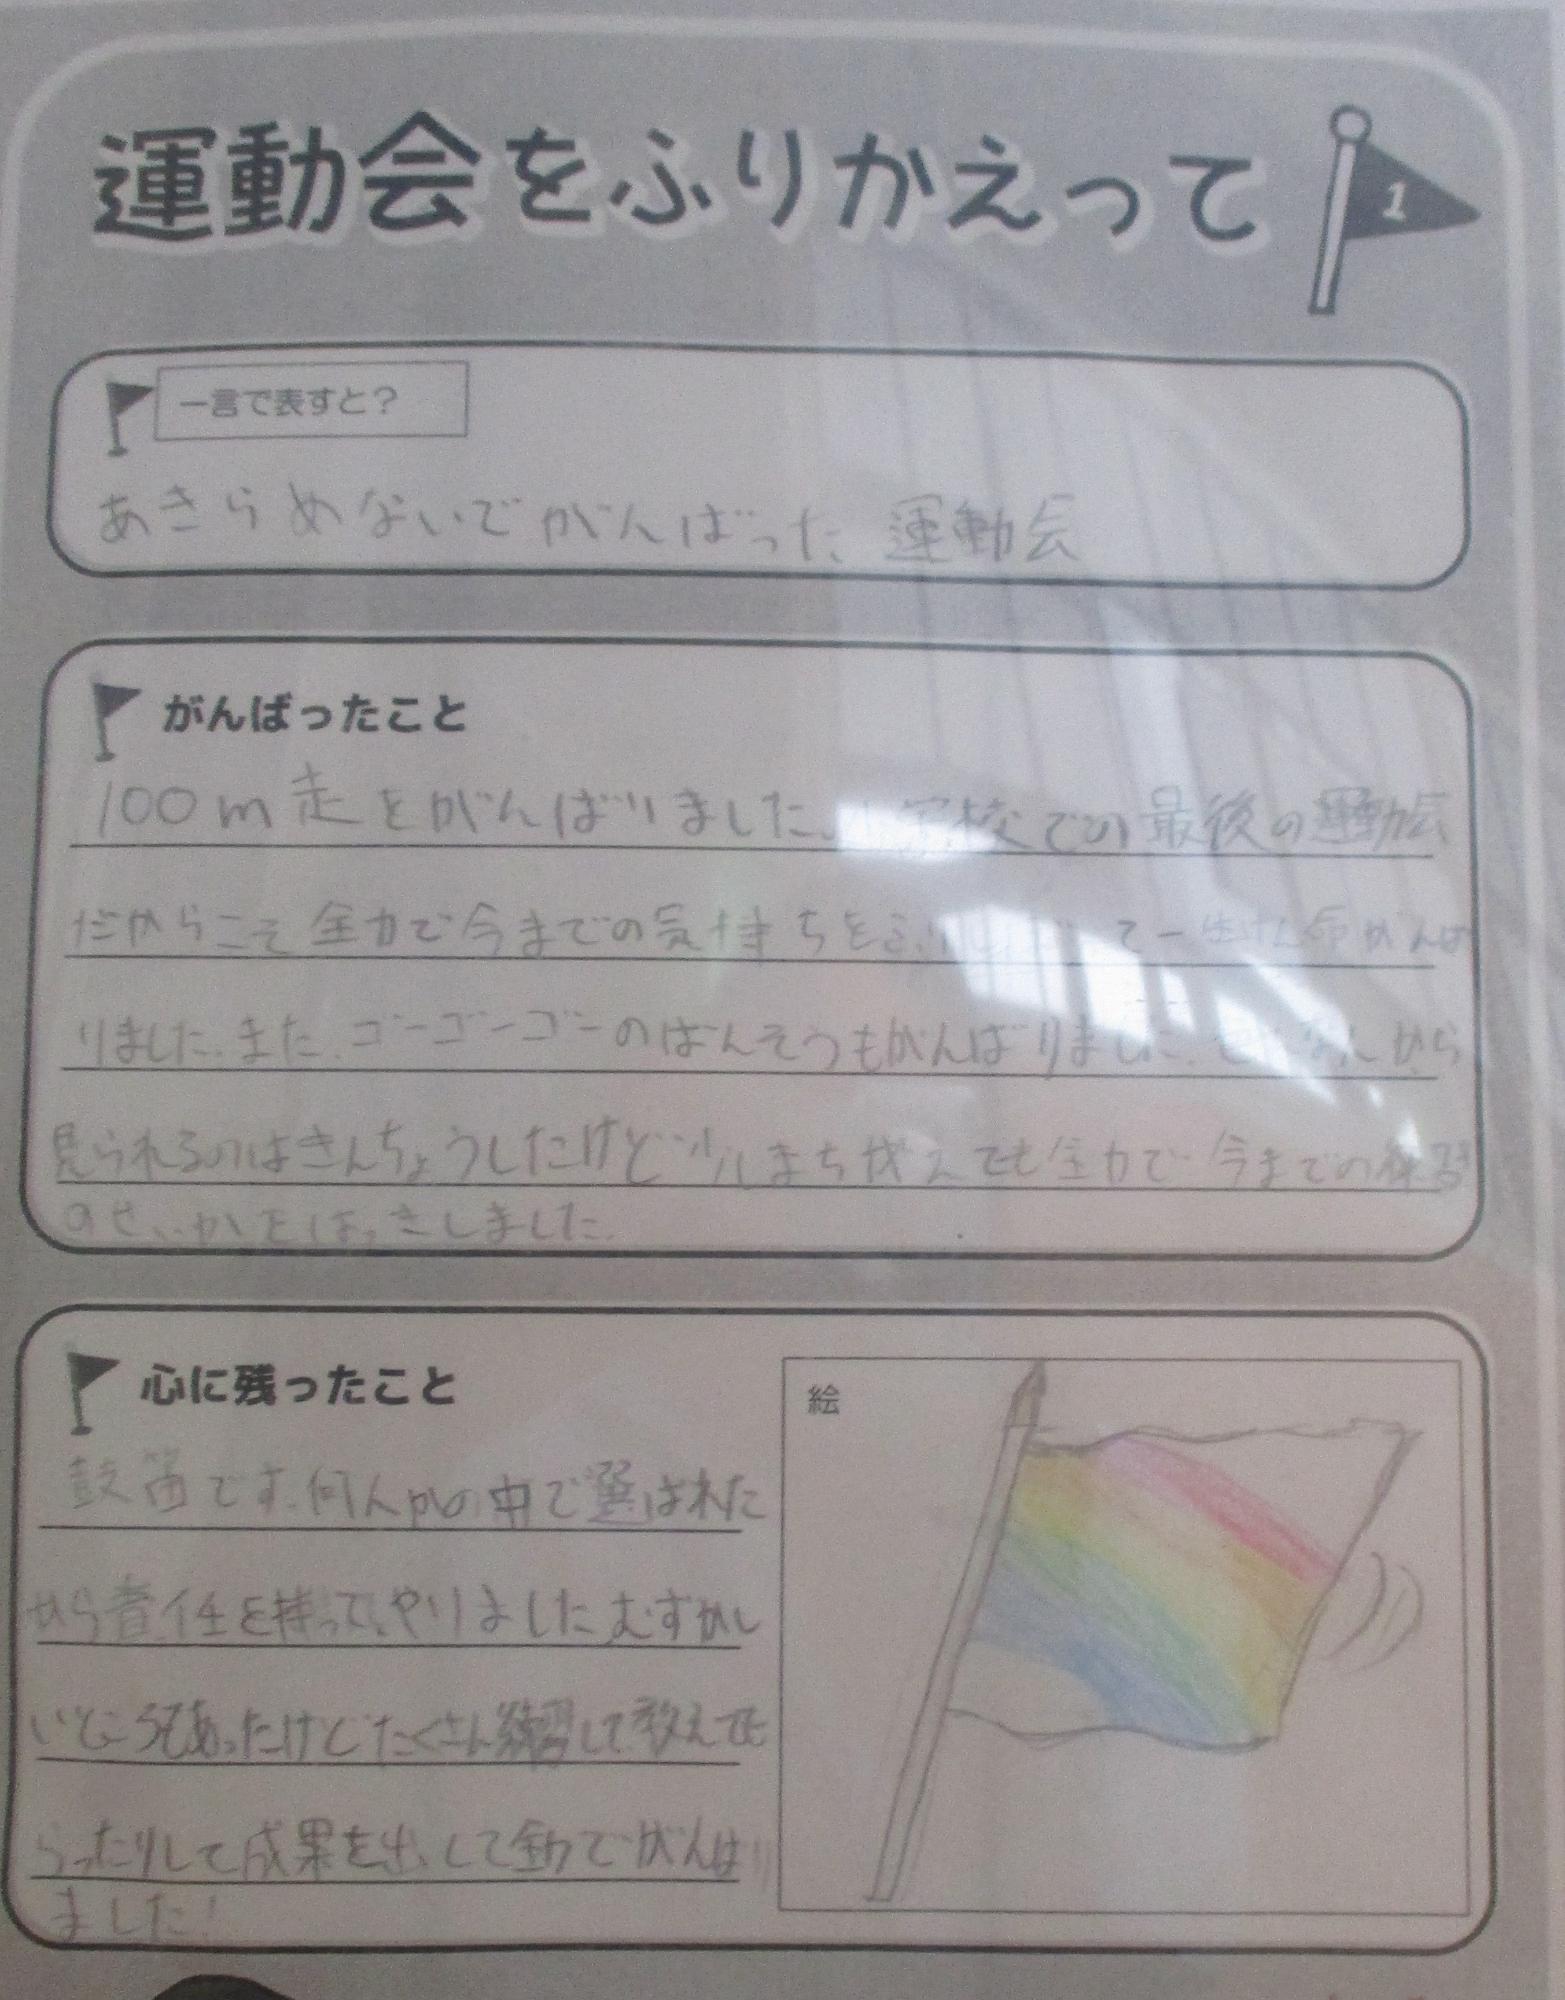 運動会をふりかえって
1
一言で表すと？
あきらめないでがんばった運動会
がんばったこと
100m走をがんばりました。小学校での最後の運動会
だからこそ全力で今までの気持ちを て一生けん命がんば
りました。また、ゴーゴーゴーのばんそうもがんばりました。 から
見られるのはきんちょうしたけど少しまち がえても全力で今までの練習
のせいかをはっきしました。
心に残ったこと
鼓笛です。何人かの中で選ばれた
から責任を持ってやりました。むずかし
いところもあったけどたくさん練習して教えても
らったりして成果を出して全力でがんばり
ました!
絵